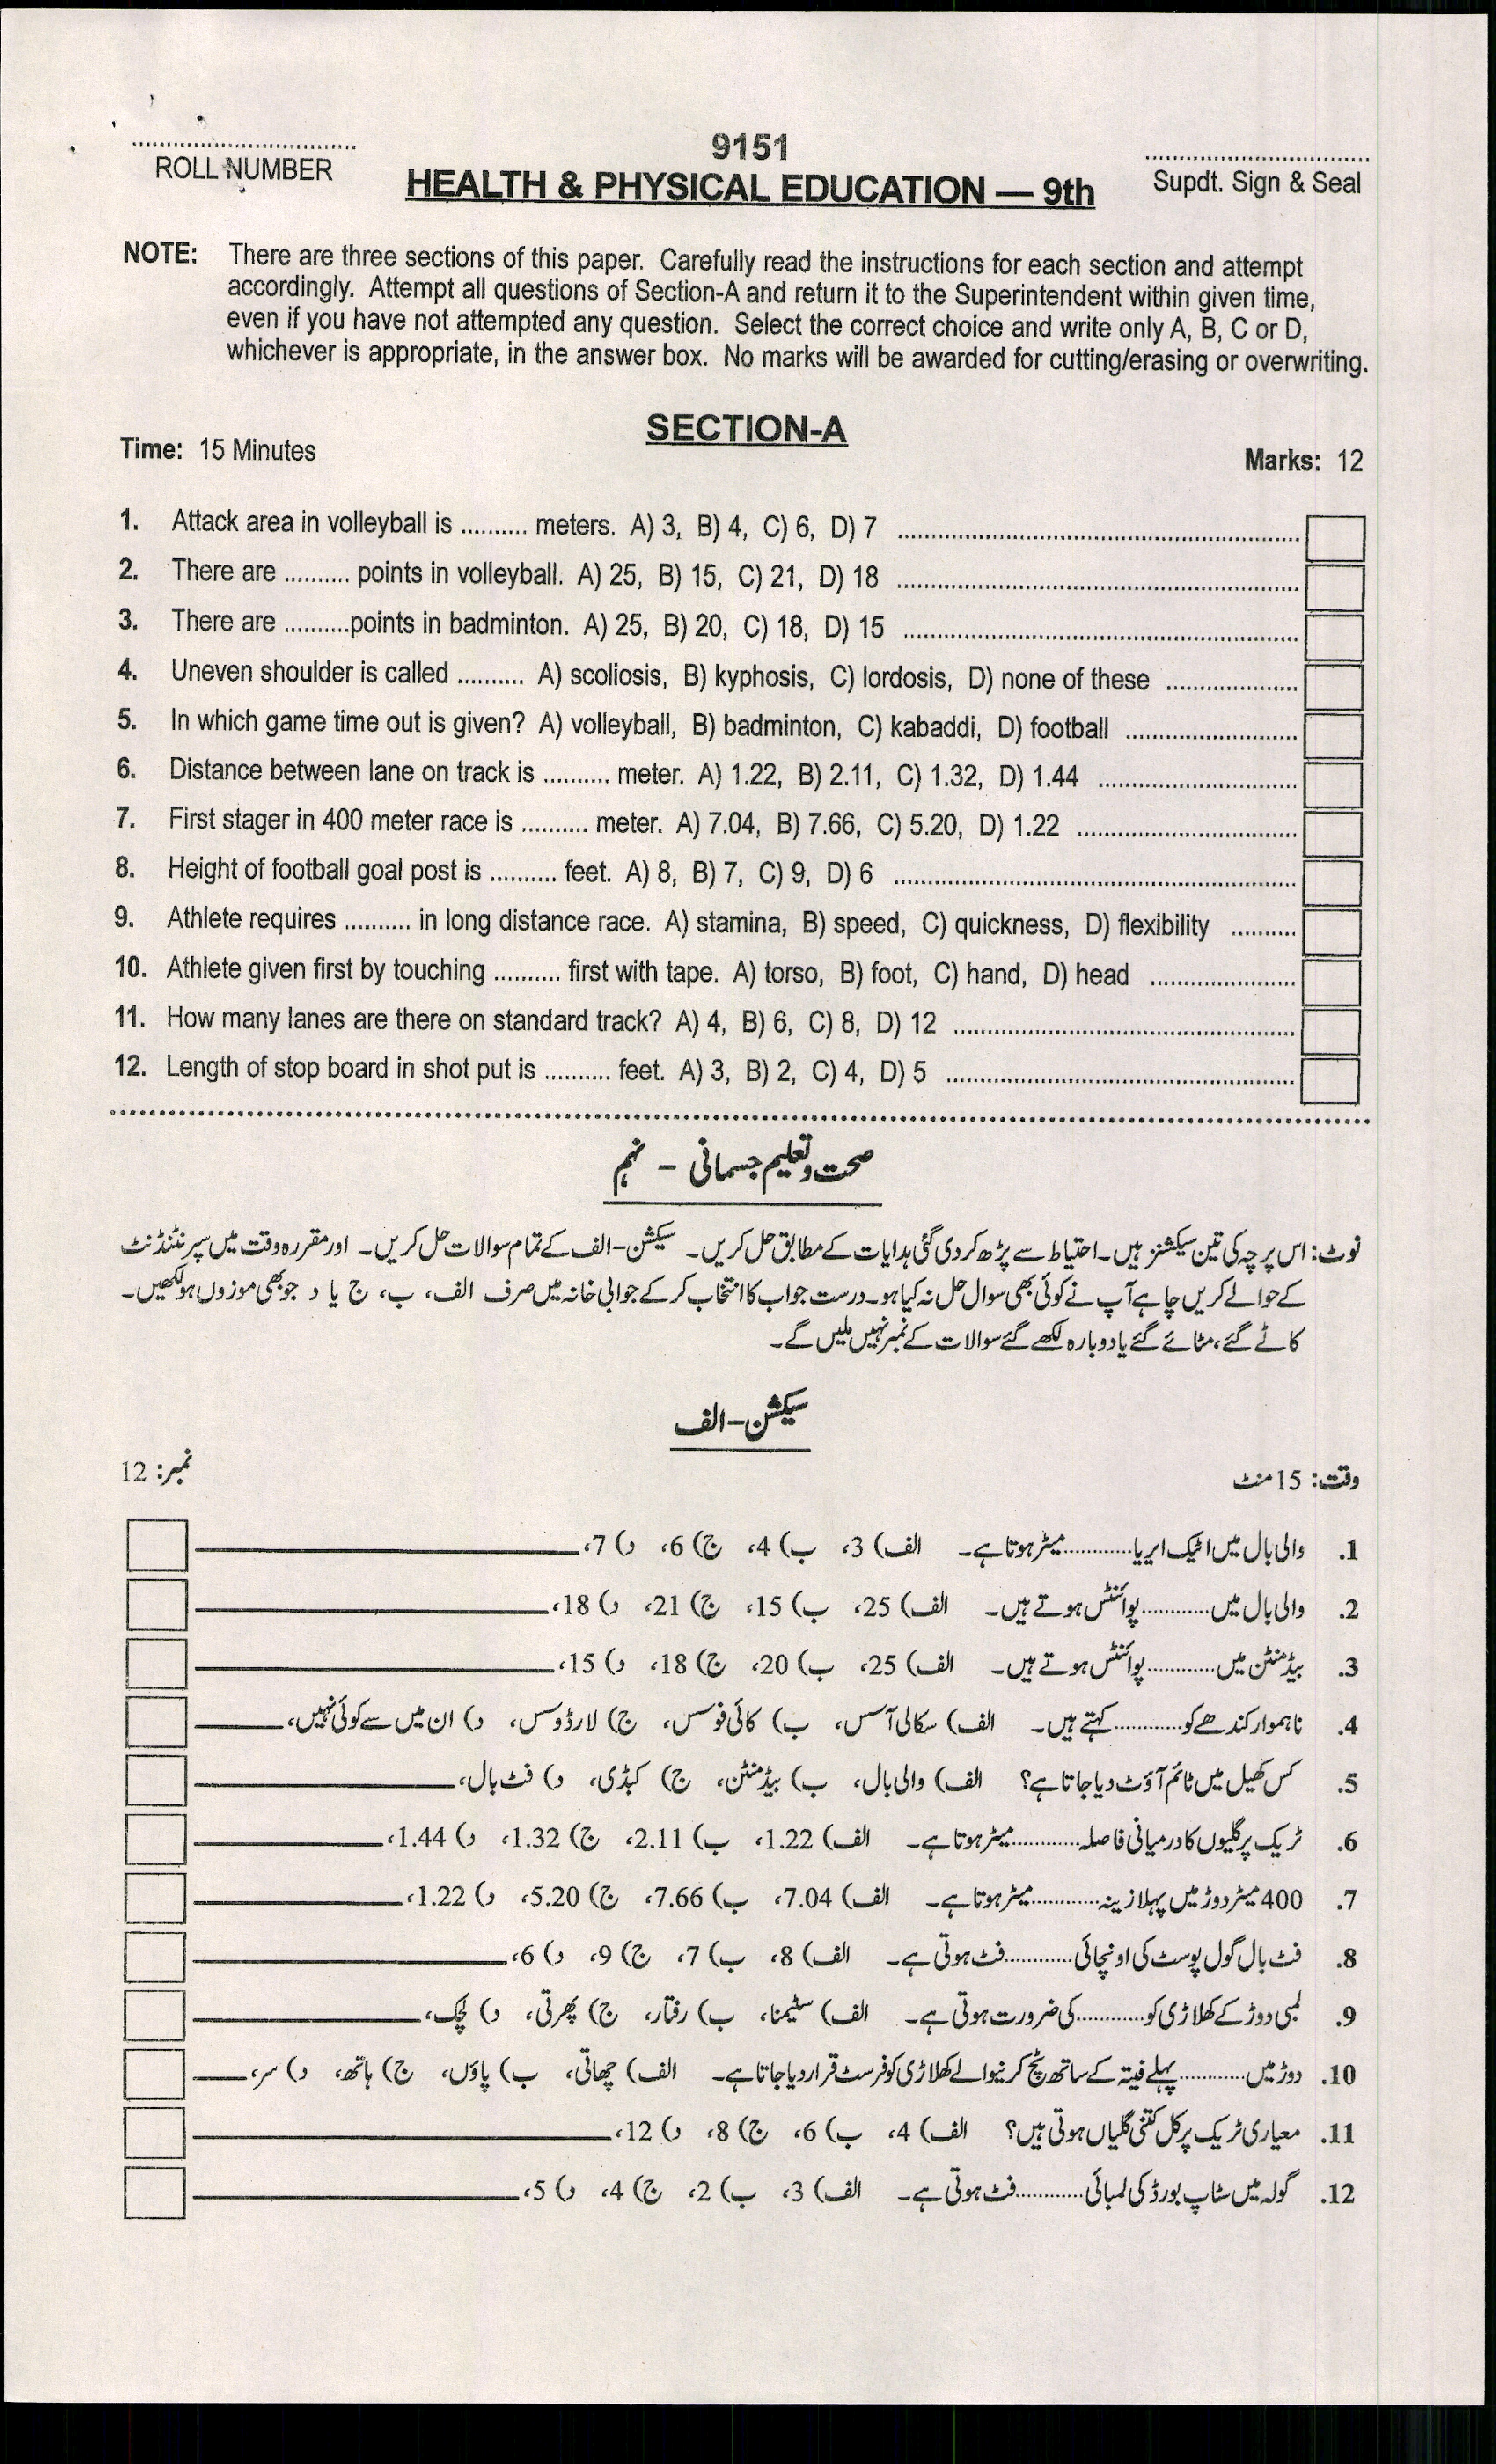 9151
ROLL NUMBER
HEALTH & PHYSICAL EDUCATION — 9th
Supdt. Sign & Seal
NOTE: There are three sections of this paper. Carefully read the instructions for each section and attempt
accordingly. Attempt all questions of Section-A and return it to the Superintendent within given time,
even if you have not attempted any question. Select the correct choice and write only A, B, C or D,
whichever is appropriate, in the answer box. No marks will be awarded for cutting/erasing or overwriting.
SECTION-A
Time: 15 Minutes
Marks: 12
1. Attack area in volleyball is .......... meters. A) 3, B) 4, C) 6, D) 7
2. There are .......... points in volleyball. A) 25, B) 15, C) 21, D) 18
3. There are ..........points in badminton. A) 25, B) 20, C) 18, D) 15
4. Uneven shoulder is called .......... A) scoliosis, B) kyphosis, C) lordosis, D) none of these
5. In which game time out is given? A) volleyball, B) badminton, C) kabaddi, D) football
6. Distance between lane on track is .......... meter. A) 1.22, B) 2.11, C) 1.32, D) 1.44
7. First stager in 400 meter race is .......... meter. A) 7.04, B) 7.66, C) 5.20, D) 1.22
8. Height of football goal post is .......... feet. A) 8, B) 7, C) 9, D) 6
9. Athlete requires .......... in long distance race. A) stamina, B) speed, C) quickness, D) flexibility
10. Athlete given first by touching .......... first with tape. A) torso, B) foot, C) hand, D) head
11. How many lanes are there on standard track? A) 4, B) 6, C) 8, D) 12
12. Length of stop board in shot put is .......... feet. A) 3, B) 2, C) 4, D) 5
صحت و تعلیم جسمانی - نہم
نوٹ: اس پرچہ کی تین سیکشنز ہیں۔ احتیاط سے پڑھ کر دی گئی ہدایات کے مطابق حل کریں۔ سیکشن-الف کے تمام سوالات حل کریں۔ اور مقررہ وقت میں سپرنٹنڈنٹ
کے حوالے کریں چاہے آپ نے کوئی بھی سوال حل نہ کیا ہو۔ درست جواب کا انتخاب کر کے جوابی خانہ میں صرف الف، ب، ج یا د جو بھی موزوں ہو لکھیں۔
کاٹے گئے، مٹائے گئے یا دوبارہ لکھے گئے سوالات کے نمبر نہیں ملیں گے۔
سیکشن-الف
وقت: 15 منٹ
نمبر: 12
1. والی بال میں اٹیک ایریا............میٹر ہوتا ہے۔ الف) 3، ب) 4، ج) 6، د) 7،
2. والی بال میں............پوائنٹس ہوتے ہیں۔ الف) 25، ب) 15، ج) 21، د) 18،
3. بیڈمنٹن میں............پوائنٹس ہوتے ہیں۔ الف) 25، ب) 20، ج) 18، د) 15،
4. ناہموار کندھے کو............کہتے ہیں۔ الف) سکالی آسس، ب) کائی فوسس، ج) لارڈوسس، د) ان میں سے کوئی نہیں،
5. کس کھیل میں ٹائم آؤٹ دیا جاتا ہے؟ الف) والی بال، ب) بیڈمنٹن، ج) کبڈی، د) فٹ بال،
6. ٹریک پر گلیوں کا درمیانی فاصلہ............میٹر ہوتا ہے۔ الف) 1.22، ب) 2.11، ج) 1.32، د) 1.44،
7. 400 میٹر دوڑ میں پہلا زینہ............میٹر ہوتا ہے۔ الف) 7.04، ب) 7.66، ج) 5.20، د) 1.22،
8. فٹ بال گول پوسٹ کی اونچائی............فٹ ہوتی ہے۔ الف) 8، ب) 7، ج) 9، د) 6،
9. لمبی دوڑ کے کھلاڑی کو............کی ضرورت ہوتی ہے۔ الف) سٹیمنا، ب) رفتار، ج) پھرتی، د) لچک،
10. دوڑ میں............پہلے فیتہ کے ساتھ ٹچ کرنیوالے کھلاڑی کو فرسٹ قرار دیا جاتا ہے۔ الف) چھاتی، ب) پاؤں، ج) ہاتھ، د) سر،
11. معیاری ٹریک پر کل کتنی گلیاں ہوتی ہیں؟ الف) 4، ب) 6، ج) 8، د) 12،
12. گولہ میں سٹاپ بورڈ کی لمبائی............فٹ ہوتی ہے۔ الف) 3، ب) 2، ج) 4، د) 5،